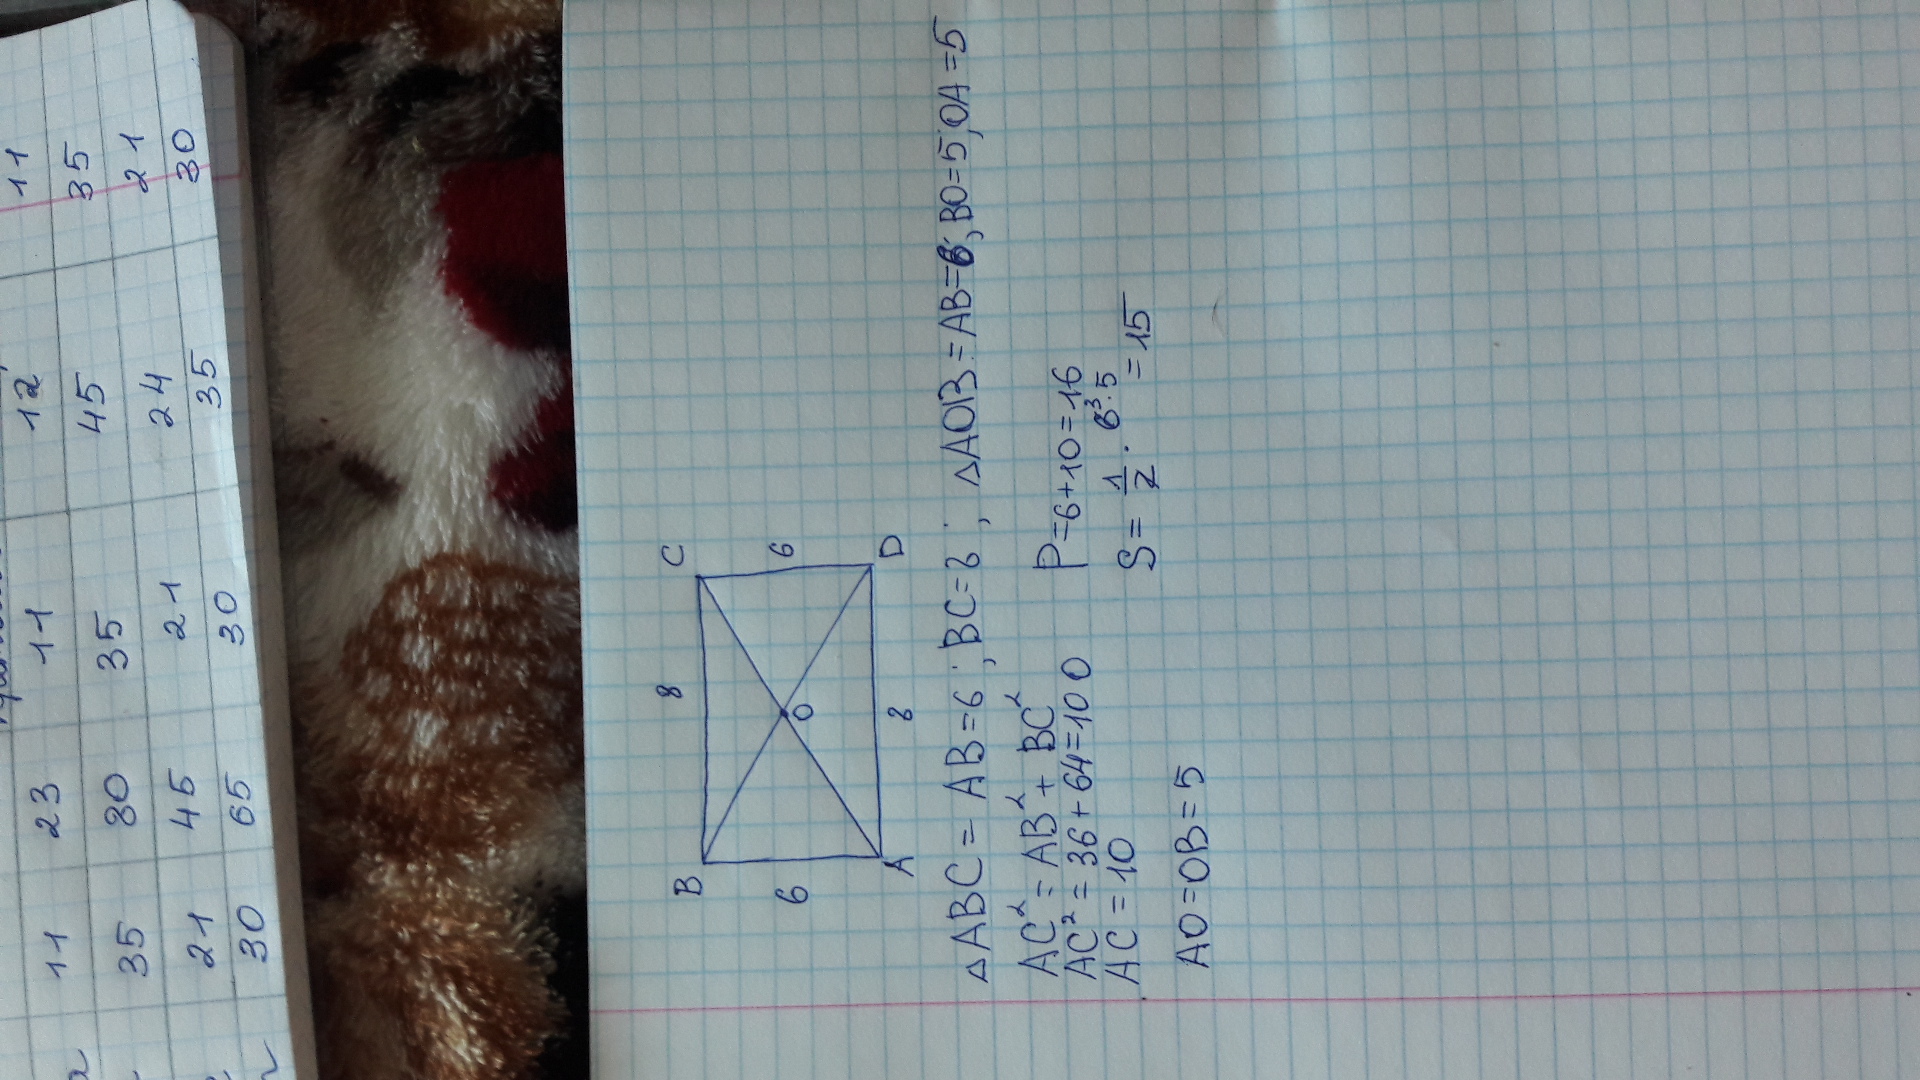 11 23 11 12 11
35 80 35 45 35
21 45 21 24 21
30 65 30 35 30
B 8 C
6 O 6
A 8 D
△ABC = AB=6; BC=8; △AOB = AB=6; BO=5; OA=5
AC² = AB² + BC²
AC² = 36+64=100
AC = 10
P=6+10=16
S= 1/2 · 6³·5 = 15
AO=OB=5